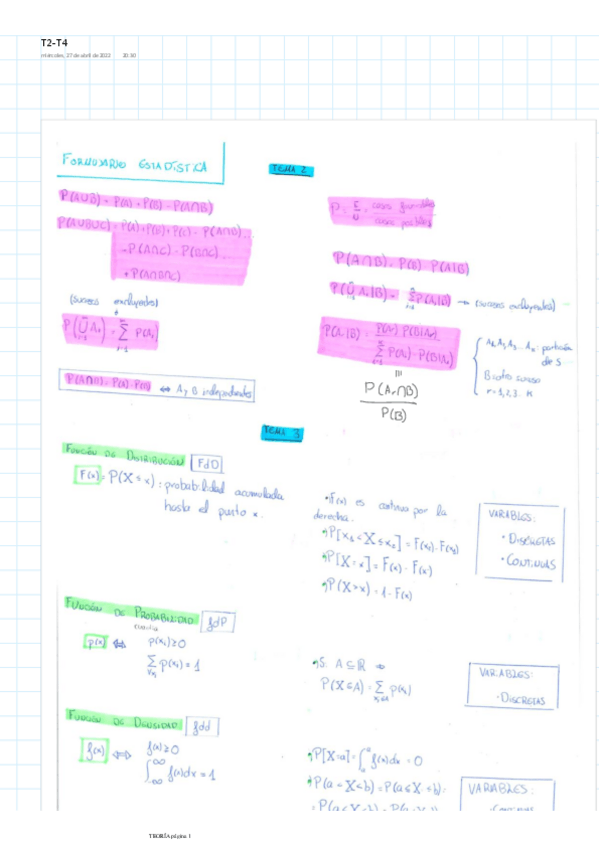 T2-T4
miércoles, 27 de abril de 2022 20:30
FORMULARIO ESTADÍSTICA
TEMA 2
P(A∪B) = P(A) + P(B) - P(A∩B)
P(A∪B∪C) = P(A)+P(B)+P(C) - P(A∩B)
-P(A∩C) - P(B∩C)
+ P(A∩B∩C)
(sucesos excluyentes)
P(⋃ Aᵢ) = ∑ P(Aᵢ)
P(A∩B) = P(A)·P(B) ⇔ A y B independientes
P = F/U = casos favorables / casos posibles
P(A∩B) = P(B)·P(A|B)
P(⋃ Aᵢ|B) = ∑ P(Aᵢ|B) → (sucesos excluyentes)
P(Aᵢ|B) = P(Aᵢ)·P(B|Aᵢ) / ∑ P(Aᵢ)·P(B|Aᵢ)
A₁, A₂, A₃... Aₖ: partición
de S
B otro suceso
r = 1,2,3... K
=
P(Aᵣ∩B)
P(B)
TEMA 3
FUNCIÓN DE DISTRIBUCIÓN FdD
F(x) = P(X ≤ x) : probabilidad acumulada
hasta el punto x.
• F(x) es continua por la
derecha.
P[x₁ < X ≤ x₂] = F(x₂) - F(x₁)
P[X = x] = F(x) - F(x)
P(X > x) = 1 - F(x)
VARIABLES:
• DISCRETAS
• CONTINUAS
FUNCIÓN DE PROBABILIDAD fdP
p(x) ⇔ p(xᵢ) ≥ 0
∑ p(xᵢ) = 1
∀xᵢ
Si A ⊆ ℝ ⇒
P(X ∈ A) = ∑ p(xᵢ)
xᵢ∈A
VARIABLES:
• DISCRETAS
FUNCIÓN DE DENSIDAD fdd
f(x) ⇔ f(x) ≥ 0
∫ f(x)dx = 1
P[X=a] = ∫ f(x)dx = 0
P(a < X < b) = P(a ≤ X < b) =
VARIABLES:
TEORÍA página 1